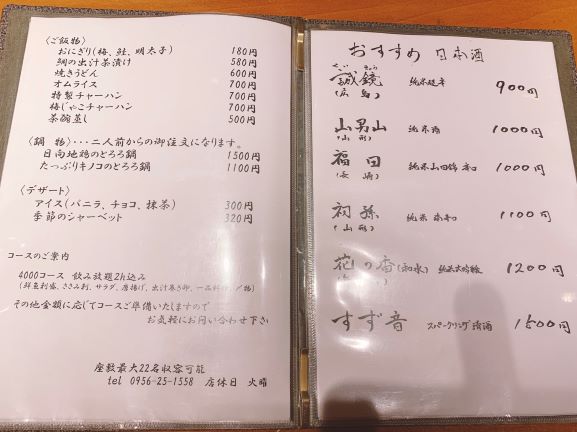 〈ご飯物〉
おにぎり(梅、鮭、明太子) 180円
鯛の出汁茶漬け 580円
焼きうどん 600円
オムライス 700円
特製チャーハン 700円
梅じゃこチャーハン 700円
茶碗蒸し 500円
〈鍋 物〉・・・二人前からの御注文になります。
日向地鶏のとろろ鍋 1500円
たっぷりキノコのとろろ鍋 1100円
〈デザート〉
アイス(バニラ、チョコ、抹茶) 300円
季節のシャーベット 320円
コースのご案内
4000コース 飲み放題2h込み
(鮮魚刺盛、ささみ刺、サラダ、唐揚げ、出汁巻き卵、一品料理、〆物)
その他金額に応じてコースご準備いたしますので
お気軽にお問い合わせ下さい
座敷最大22名収容可能
tel 0956-25-1558 店休日 火曜
おすすめ 日本酒
誠鏡 純米超辛 900円
(広島)
山男山 純米酒 1000円
(山形)
福田 純米山田錦 1000円
(長崎)
初孫 純米 1100円
(山形)
花の香(和水) 純米大吟醸 1200円
すず音 スパークリング清酒 1500円